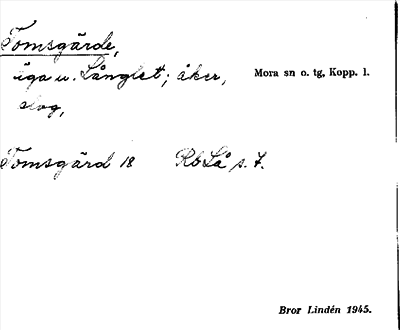 Tomsgärde,
äga u. Långlet; åker,
slog,
Mora sn o. tg, Kopp. l.
Tomsgärd 18 RbLå s. 7.
Bror Lindén 1945.